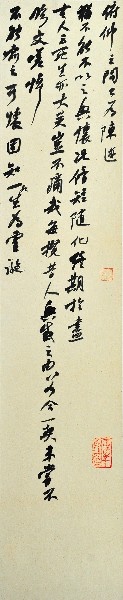 俯仰之間以爲陳迹
猶不能不以之興懷況脩短隨化終期於盡
古人云死生亦大矣豈不痛哉每攬昔人興感之由若合一契未嘗不
臨文嗟悼
不能喻之於懷固知一死生爲虛誕